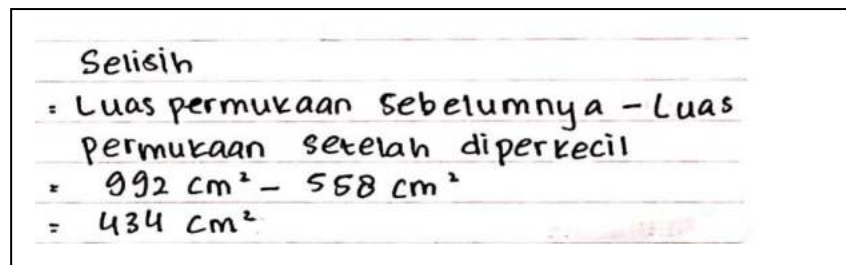 Selisih
= Luas permukaan sebelumnya - Luas
permukaan setelah diperkecil
= 992 cm² - 558 cm²
= 434 cm²